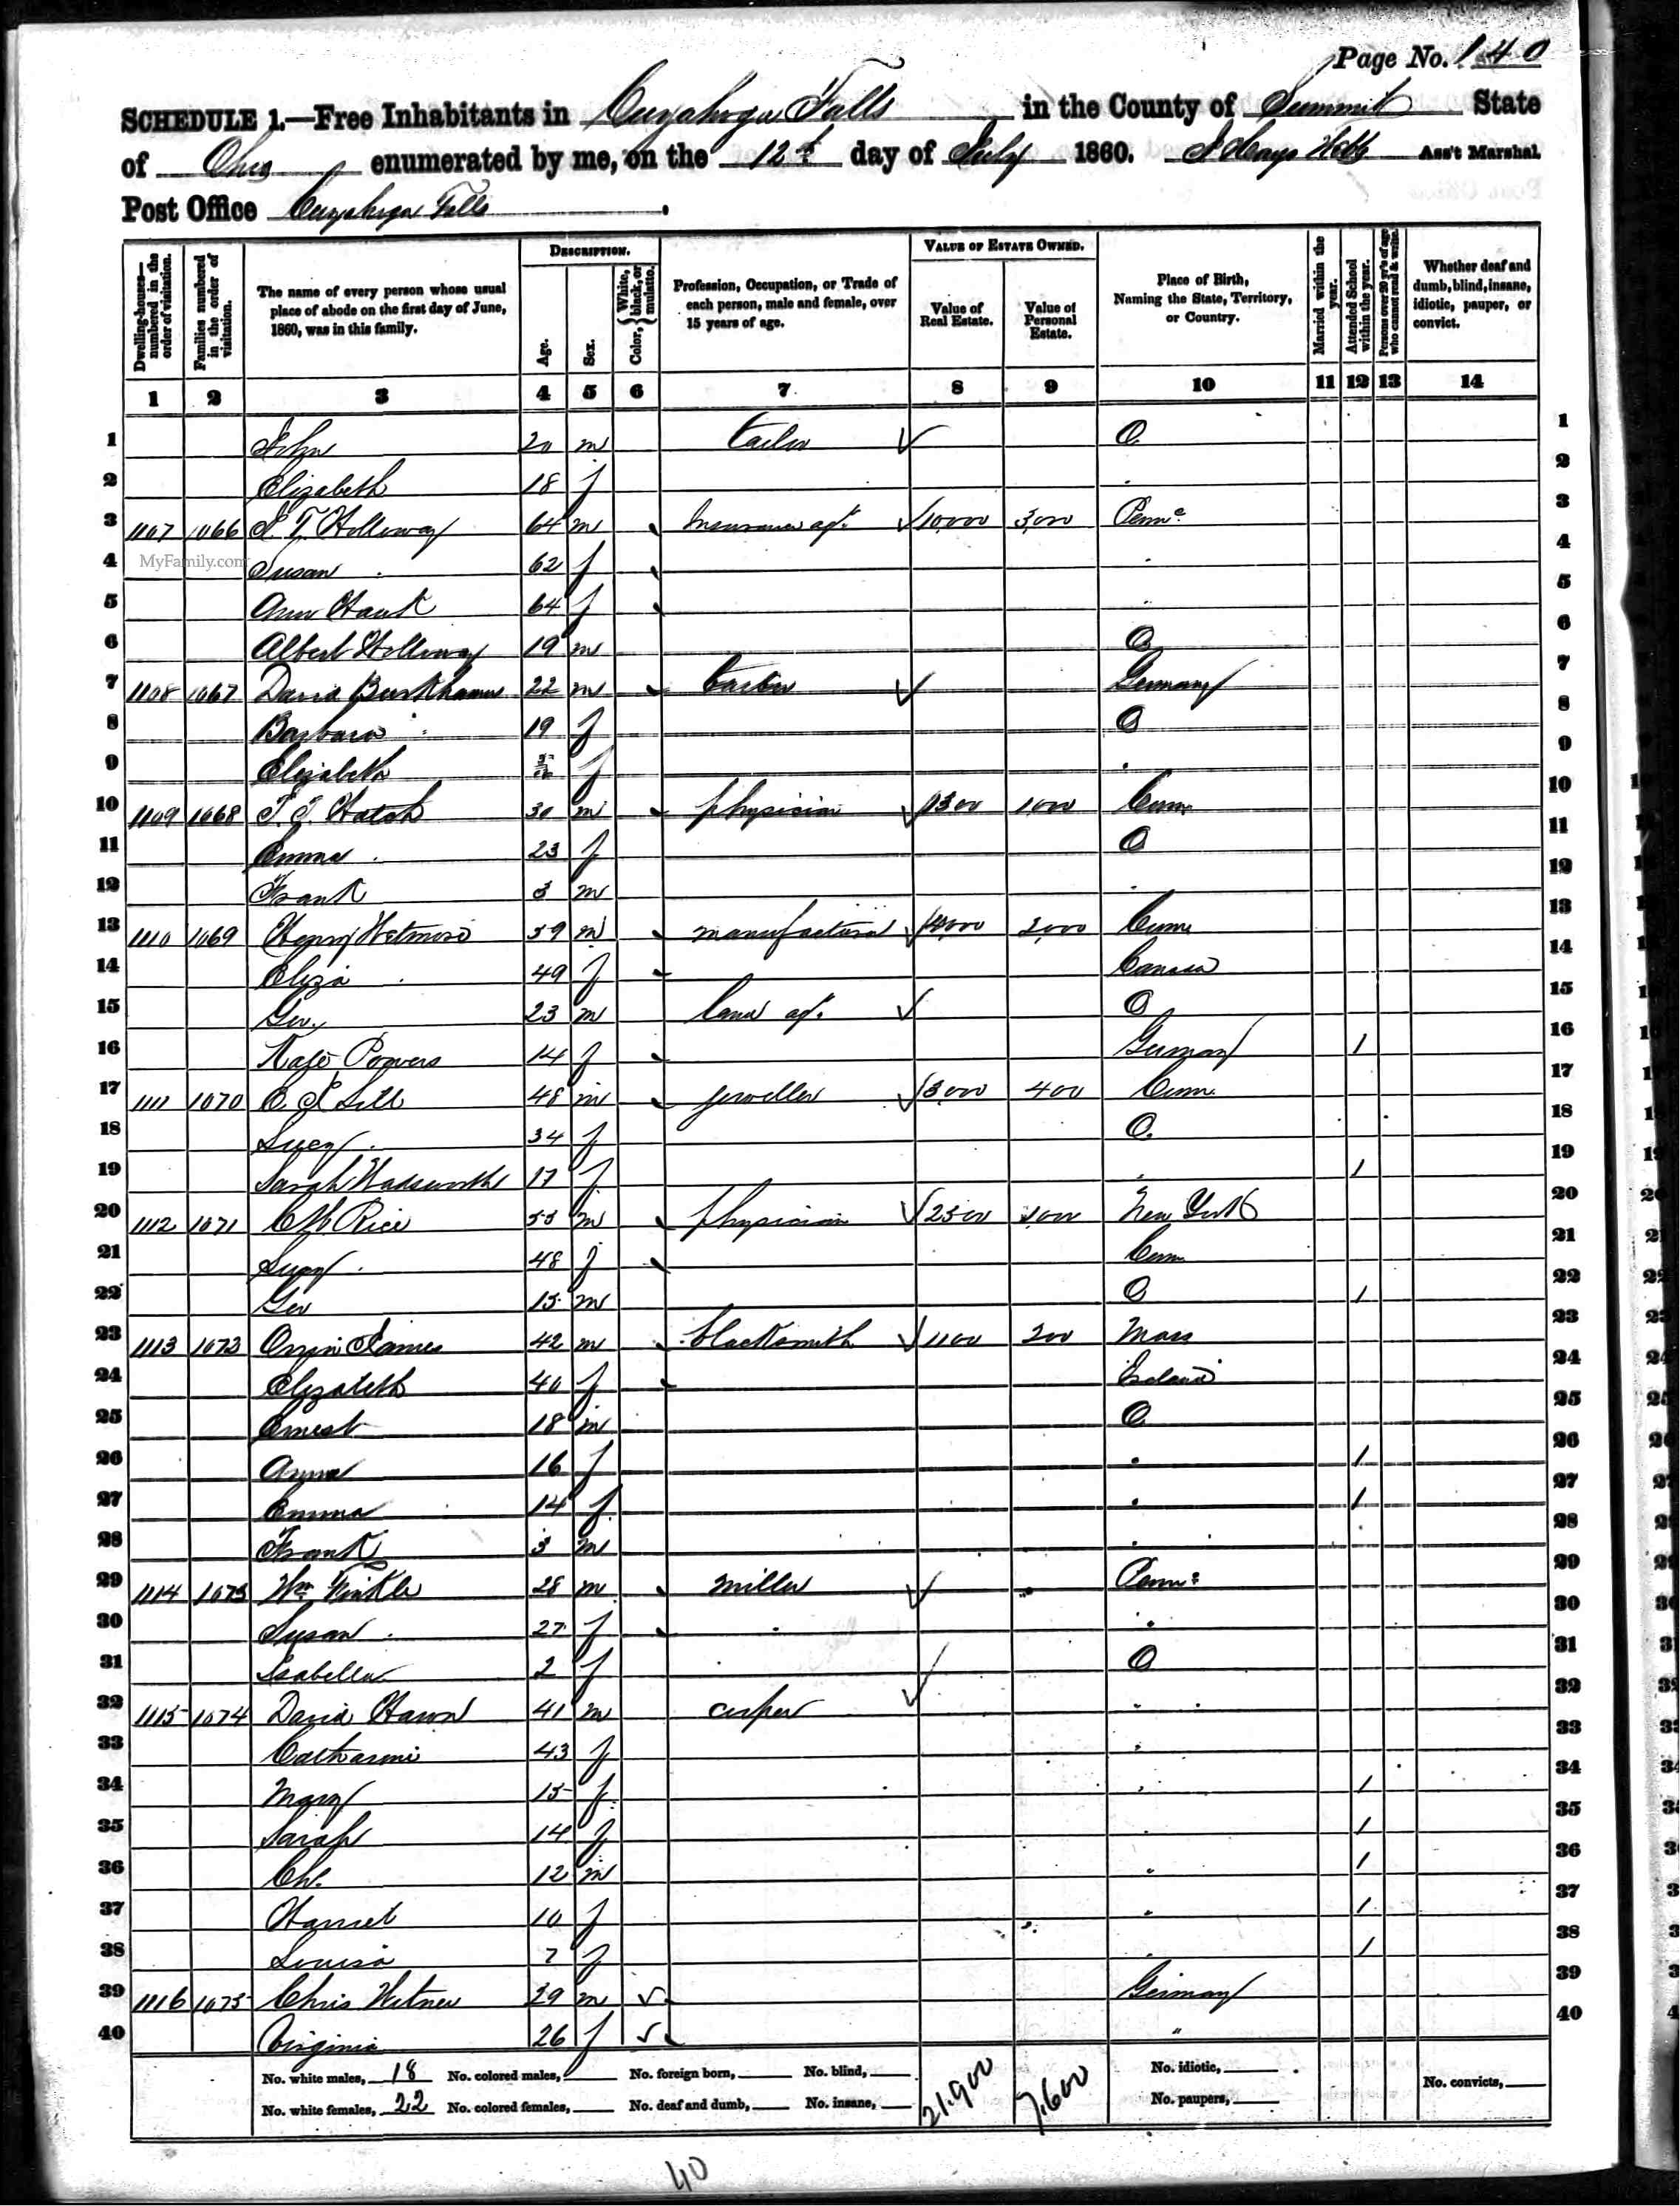 Page No. 140
SCHEDULE 1.—Free Inhabitants in Cuyahoga Falls in the County of Summit State
of Ohio enumerated by me, on the 12th day of July 1860. Webb Ass't Marshal.
Post Office Cuyahoga Falls.
Dwelling-houses—numbered in the order of visitation.
Families numbered in the order of visitation.
The name of every person whose usual place of abode on the first day of June, 1860, was in this family.
DESCRIPTION.
Age.
Sex.
Color, { White, black, or mulatto.
Profession, Occupation, or Trade of each person, male and female, over 15 years of age.
VALUE OF ESTATE OWNED.
Value of Real Estate.
Value of Personal Estate.
Place of Birth, Naming the State, Territory, or Country.
Married within the year.
Attended School within the year.
Persons over 20 y'rs of age who cannot read & write.
Whether deaf and dumb, blind, insane, idiotic, pauper, or convict.
1 2 3 4 5 6 7 8 9 10 11 12 13 14
1 John 20 m O 1
2 Elizabeth 18 f 2
3 1107 1066 Holloway 64 m Insurance agt. 10,000 3,000 Penna 3
MyFamily.com
4 Susan 62 f 4
5 Ann Hauk 64 f 5
6 Albert Holloway 19 m O 6
7 1108 1067 David 22 m Germany 7
8 Barbara 19 f O 8
9 Elizabeth f 9
10 1109 1068 Hatch 30 m physician 1300 1000 Conn 10
11 Emma 23 f O 11
12 Frank 3 m 12
13 1110 1069 Henry Wetmore 59 m 2,000 Conn 13
14 Eliza 49 f Canada 14
15 Geo. 23 m land agt. O 15
16 Kate Powers 14 f Germany 1 16
17 1111 1070 Sill 48 m jeweller 3,000 400 Conn. 17
18 Lucy 34 f O. 18
19 Sarah Wadsworth 17 f 1 19
20 1112 1071 Rice 55 m physician 2500 New York 20
21 Lucy 48 f Conn 21
22 Geo 15 m O 1 22
23 1113 1072 Orrin James 42 m blacksmith 1100 200 Mass 23
24 Elizabeth 40 f 24
25 Ernest 18 m O 25
26 Anna 16 f 1 26
27 Emma 14 f 1 27
28 Frank 3 m 28
29 1114 1073 Wm Winkle 28 m miller Penna 29
30 Susan 27 f 30
31 Isabella 2 f O 31
32 1115 1074 David Hawn 41 m 32
33 Catharine 43 f 33
34 Mary 15 f 1 34
35 Sarah 14 f 1 35
36 Ch. 12 m 1 36
37 Harriet 10 f 1 37
38 Louisa 7 f 1 38
39 1116 1075 Chris Witner 29 m Germany 39
40 Virginia 26 f " 40
No. white males, 18 No. colored males, No. foreign born, No. blind, 21.900 7.600 No. idiotic,
No. white females, 22 No. colored females, No. deaf and dumb, No. insane, No. paupers, No. convicts,
40